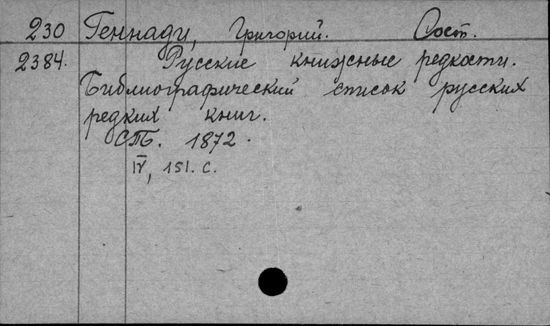 230 Геннади, Григорий. Сост.
2384. Русские книжные редкости.
Библиографический список русских
редких книг.
СПБ. 1872.
IV, 151. с.